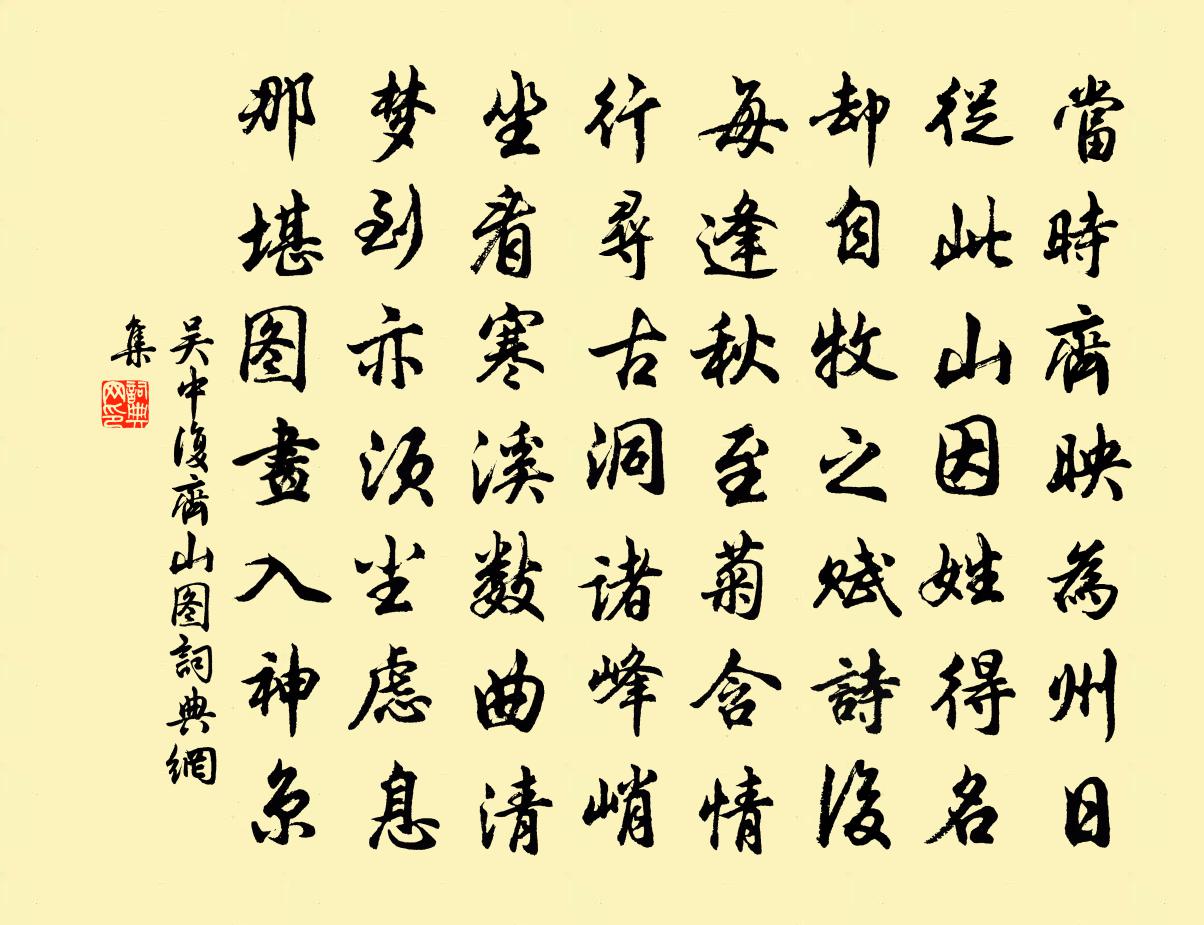 當時齊映為州日
從此山因姓得名
却自牧之賦詩後
每逢秋至菊含情
行尋古洞諸峰峭
坐看寒溪數曲清
梦到亦須坐慮息
那堪图畫入神京
吴中復齊山图詞典網
集
詞典網印